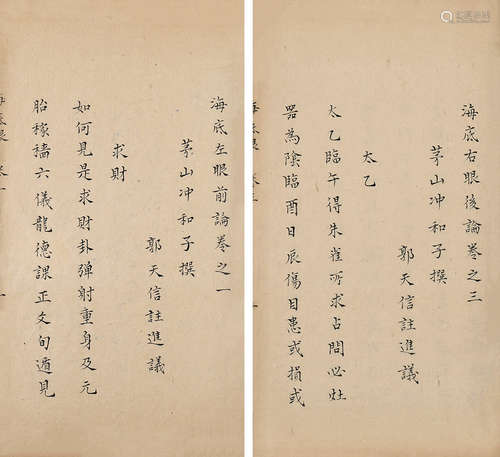 海底右眼後論卷之三
茅山冲和子撰
郭天信註進議
太乙
太乙臨午得朱雀所求占問必灶
器為陰臨酉日辰傷目患或損或
海底左眼前論卷之一
茅山冲和子撰
郭天信註進議
求財
如何見是求財卦彈射重身及元
胎稼穡六儀龍德課正爻旬遁見